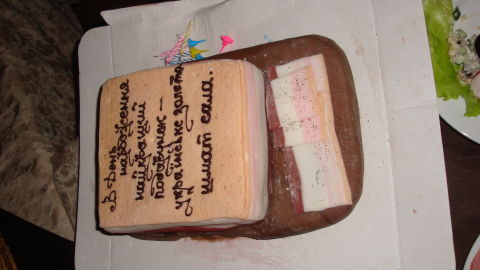 В День
народження
найкращий
подарунок —
українське золото
шмат сала.